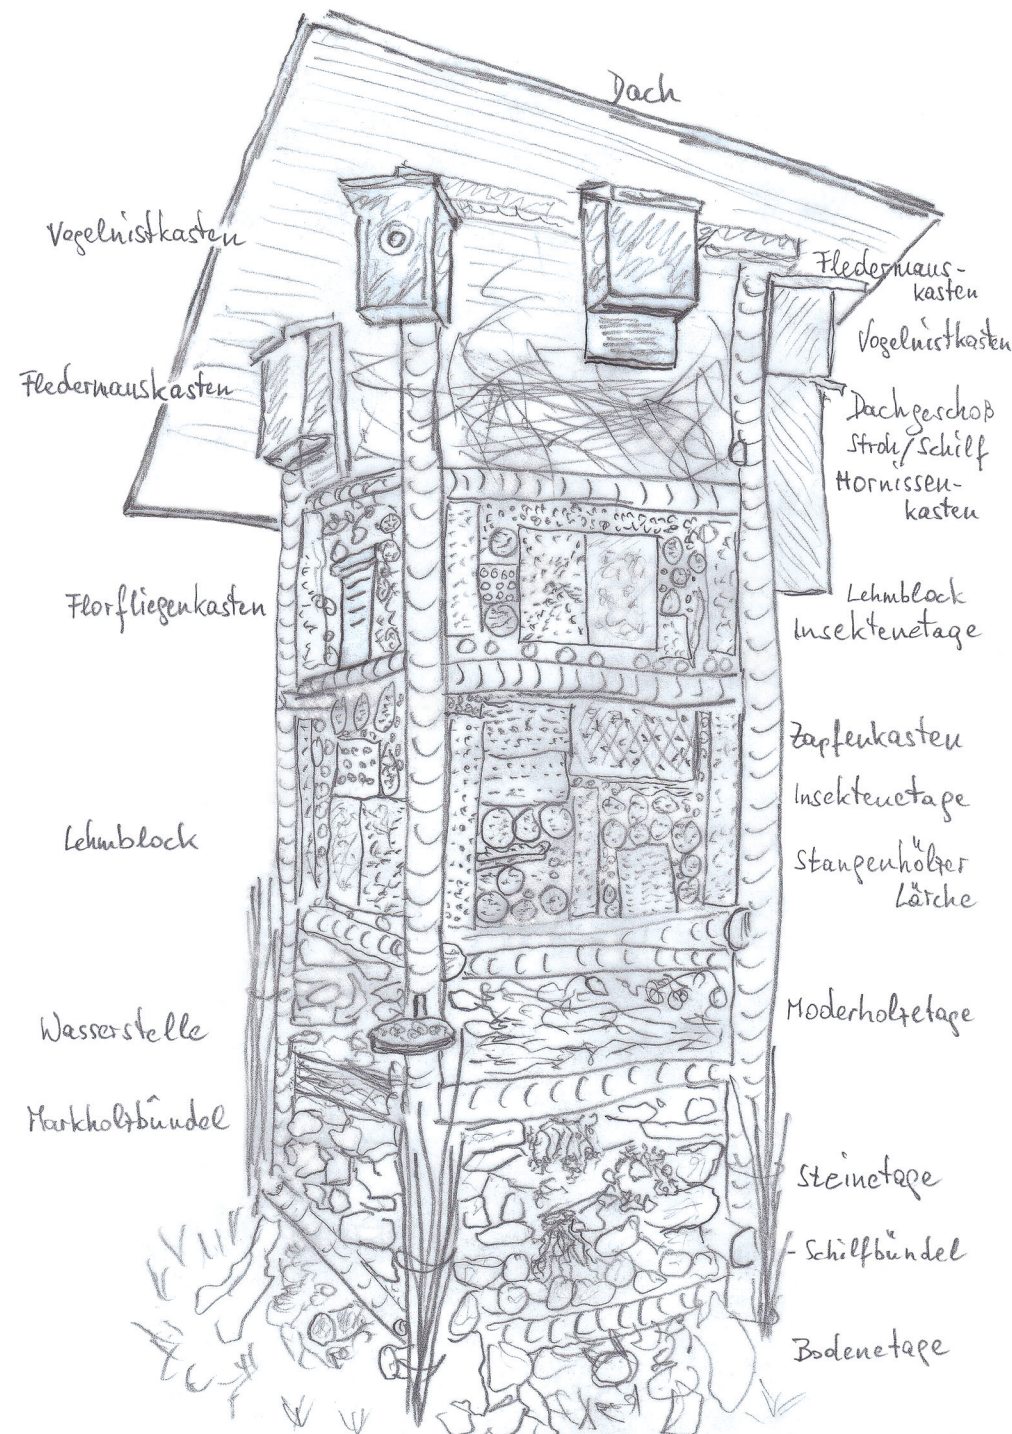 Dach
Vogelnistkasten
Fledermauskasten
Florfliegenkasten
Lehmblock
Wasserstelle
Markholzbündel
Fledermaus-
kasten
Vogelnistkasten
Dachgeschoß
Stroh/Schilf
Hornissen-
kasten
Lehmblock
Insektenetage
Zapfenkasten
Insektenetage
Stangenhölzer
Lärche
Moderholzetage
Steinetage
- Schilfbündel
Bodenetage